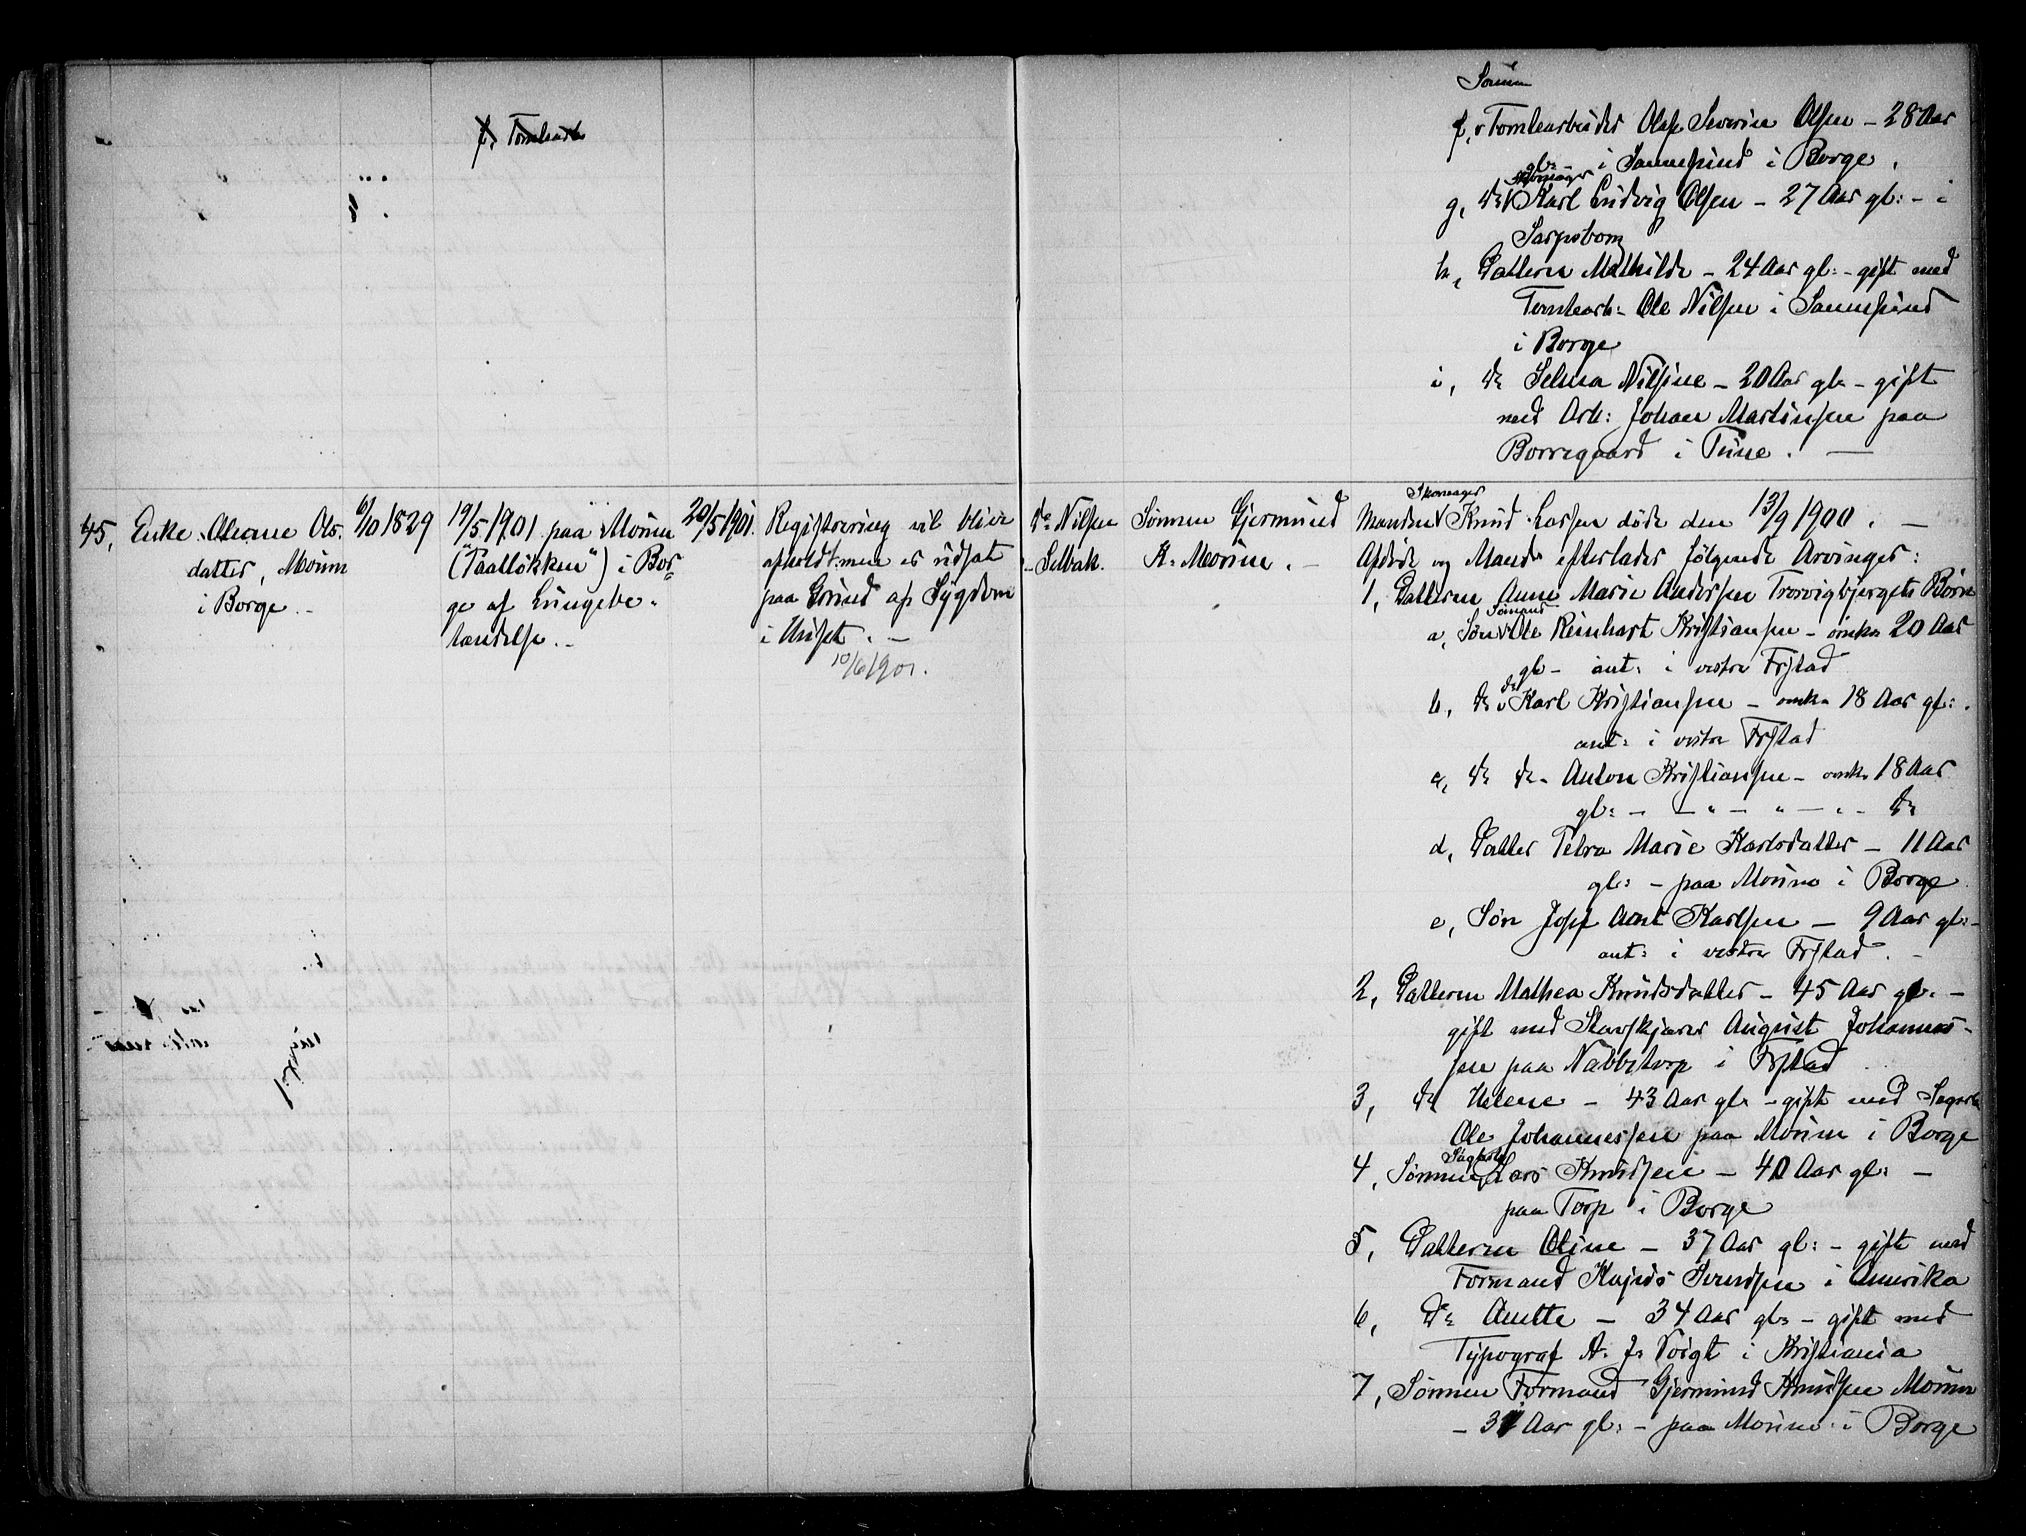 f, Tomtearb
Sønnen
f, Tomtearbeider Olaf Severin Olsen - 28 Aar
gl: - i Sannesund i Borge.
Skomager
g, do Karl Ludvig Olsen - 27 Aar gl: - i
Sarpsborg
h, Datteren Mathilde - 24 Aar gl: - gift med
Tomtearb: Ole Nilsen i Sannesund
i Borge
i, do Selma Nilsine - 20 Aar gl: - gift
med Arb: Johan Martinsen paa
Borregaard i Tune. -
45, Enke Oleane Ols-
datter, Moum
i Borge. -
6/10 1829
19/5 1901 paa Moum
("Paalløkken") i Bor-
ge af Lungebe-
tændelse. -
20/5 1901.
Registrering vil blive
afholdt men er udsat
paa Grund af Sygdom
i Huset. -
10/6 1901.
do Nilsen
- Selbak.
Sønnen Gjermund
K. Moum. -
Skomager
Manden Knud Larsen døde den 13/9 1900. -
Afdøde og Mand efterlader følgende Arvinger:
1, Datteren Anne Marie Andersen Trosvigbjergets Børn
Sømand
a, Søn Ole Reinhart Kristiansen - omkr 20 Aar
gl - ant: i vestre Frstad
do
b, do Karl Kristiansen - omkr 18 Aar gl: -
ant: i vestre Frstad
c, do do - Anton Kristiansen - omkr 18 Aar
gl: - - " - " - " - do
d, Datter Petra Marie Karlsdatter - 11 Aar
gl: - paa Moum i Borge
e, Søn Josef Arnt Karlsen - 9 Aar gl: -
ant: i vestre Frstad. -
2, Datteren Mathea Knudsdatter - 45 Aar gl: -
gift med Stavskjærer August Johannes-
sen paa Nabbetorp i Frstad
3, do Helene - 43 Aar gl - gift med Sagarb
Ole Johannessen paa Moum i Borge
Sagarb
4, Sønnen Lars Knudsen - 40 Aar gl: -
paa Torp i Borge
5, Datteren Oline - 37 Aar gl: - gift med
Formand Svendsen i Amerika
6, do Anette - 34 Aar gl: - gift med
Typograf A. J. Voigt i Kristiania
7, Sønnen Formand Gjermund Knudsen Moum
- 31 Aar gl: - paa Moum i Borge